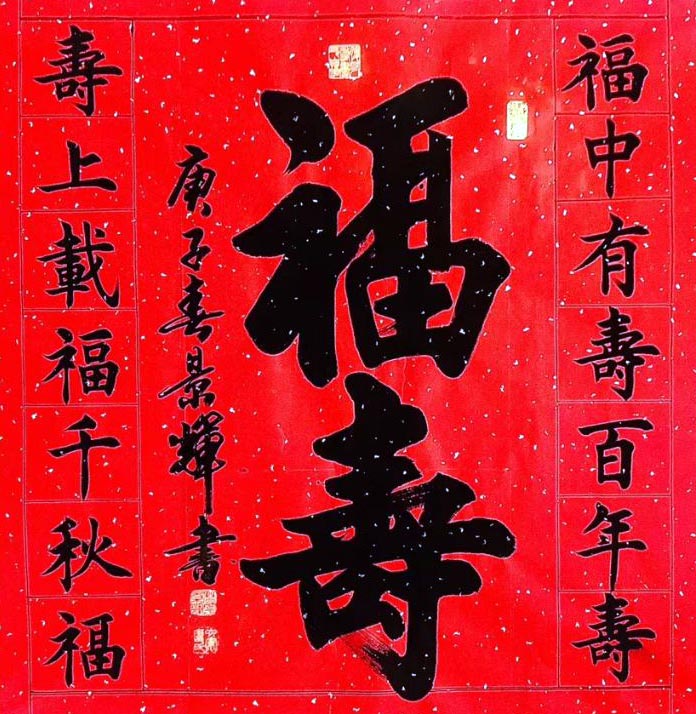 福中有壽百年壽
福壽
庚子春景輝書
壽上載福千秋福